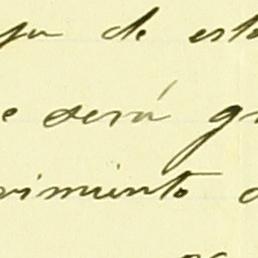 de esta
e será g
vimiento